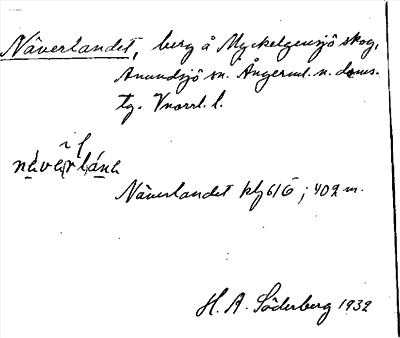 Näverlandet, berg å Myckelgensjö skog,
Anundsjö sn. Ångerml. n. doms.
tg. Vnorrl. l.
Näverlandet kbl 616; 402 m.
H. A. Söderberg 1932